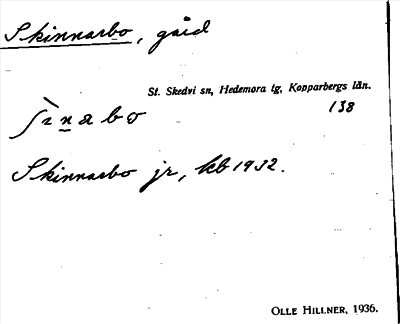 Skinnarbo, gård
St. Skedvi sn, Hedemora tg, Kopparbergs län.
138
Skinnarbo jr, kb 1932.
OLLE HILLNER, 1936.